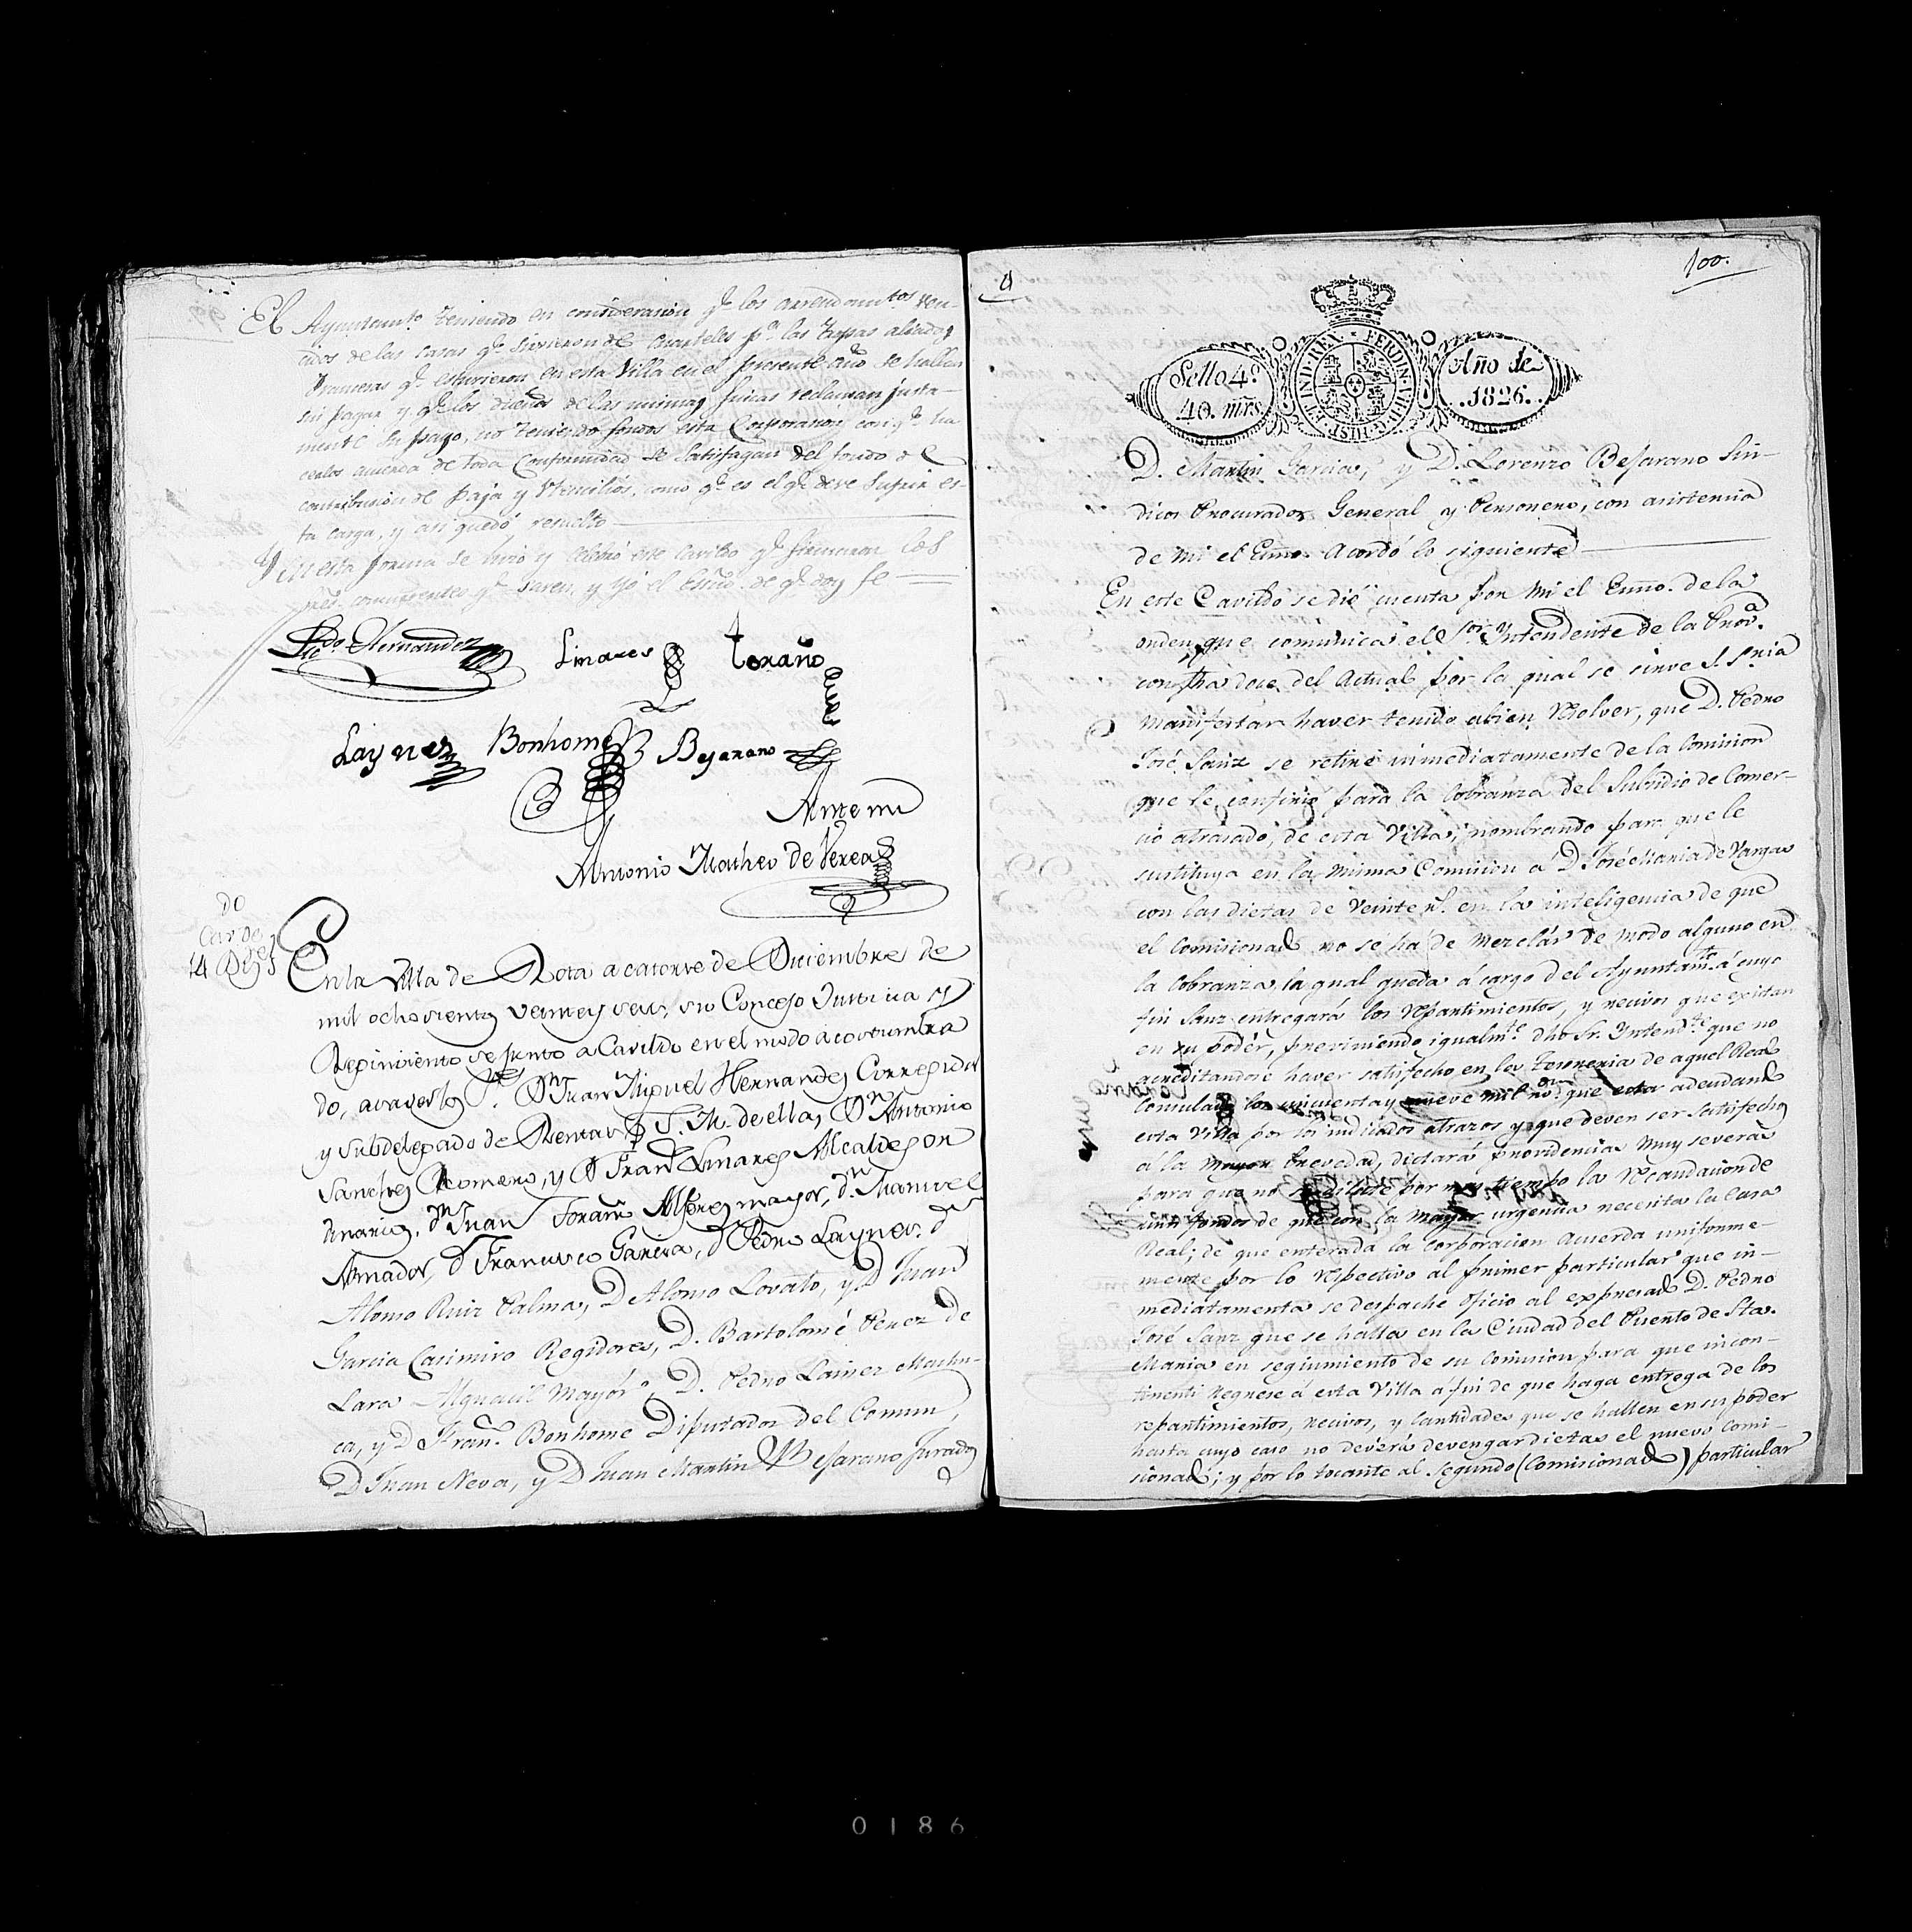 El Ayuntamto. teniendo en considerasion qe. los arrendamtos. ven-
cidos de las casas qe. sirvieron de Cuarteles pa. las tropas aliadas
Francesas qe. estuvieron en esta Villa en el presente año se hallan
sin pagar y qe. los dueños de las mismas fincas reclaman justa-
mente su pago, no teniendo fondos esta Corporasion con qe. ha-
cerlos acuerda de toda Conformidad se satisfagan del fondo de
contribusion de paja y Utencilios, como qe. es el qe. deve sufrir es-
ta carga, y asi quedó resuelto
Y en esta forma se hizo y celebró este Cavildo qe. firmaron los
Sres. concurrentes qe. saven, y yo el Esno. de qe. doy fe
Lcdo. Hernandez
Linares
Toraño
Laynez
Bonhome
Bejarano
Ante mi
Antonio Matheo de Perea
Cavdo.
14 Dbre
En la Villa de Rota a catorse de Diciembre de
mil ochosientos veinte y seis, su Concejo Justicia y
Regimiento se junto a Cavildo en el modo acostumbra
do, a saver los Sres. Dn. Juan Miguel Hernandez Corregidor
y Subdelegado de Rentas pr. S. M. de ella, Dn. Antonio
Sanchez Romero, y D Franco. Linares Alcaldes or
dinarios, Dn. Juan Toraño Alferez mayor, Dn. Manuel
Amador, D Francisco Garcia, D Pedro Laynez, Dn
Alonso Ruiz Palma, D Alonso Lovato, y D Juan
Garcia Casimiro Regidores, D. Bartolomé Perez de
Lara Alguacil Mayór, D. Pedro Lainez Machu-
ca, y D Frano. Bonhome Diputados del Comun,
D Juan Neva, y D Juan Martin Besarano Jurados
100.
Sello 4.º
40. mrs.
FERDIN. VII. D. G. HISP. ET IND. REX
Año de
1826.
D. Martin Garcia, y D. Lorenzo Besarano Sin-
dicos Procurador General y Personero, con asistencia
de mi el Esno. Acordó lo siguiente
En este Cavildo se dió cuenta por mi el Esno. de la
orden que comunica el Sor. Intendente de la Prova.
con fha doce del Actual por la qual se sirve S. Sria
Manifestar haver tenido abien resolver, que D. Pedro
José Sanz se retire inmediatamente de la Comision
que le confirió para la Cobranza del Subsidio de Comer-
cio atrasado, de esta Villa, nombrando para que le
sustituya en la misma Comision á D. José Maria de Vargas
con las dietas de veinte rs. en la inteligencia de que
el Comisionado no se há de mezclár de modo alguno en
la Cobranza la qual queda á cargo del Ayuntamto. á cuyo
fin Sanz entregará los repartimientos, y recivos que existan
en su podér, previniendo igualmte. dho Sr. Intendte. que no
acreditandose haver satisfecho en la Tesoreria de aquel Real
Consulado los cincuenta y nueve mil rs. on. que esta adeudando
esta Villa por los indicados atrazos y que deven ser satisfechos
á la mayor brevedad, dictará providencias muy severas
para que no se dilate por mas tiempo la recaudacion de
unos fondos de que con la mayor urgencia necesita la Casa
Real; de que enterada la Corporacion acuerda uniforme-
mente por lo respectivo al primer particular que in-
mediatamenta se despache oficio al expresado D. Pedro
José Sanz que se halla en la Ciudad del Puerto de Sta.
Maria en seguimiento de su Comision para que incon-
tinenti regrese á esta Villa á fin de que haga entrega de los
repartimientos, recivos, y Cantidades que se hallen en su poder
hasta cuyo caso no deverá devengar dietas el nuevo Comi-
sionado; y por lo tocante al segundo (Comisionado) particular
0186